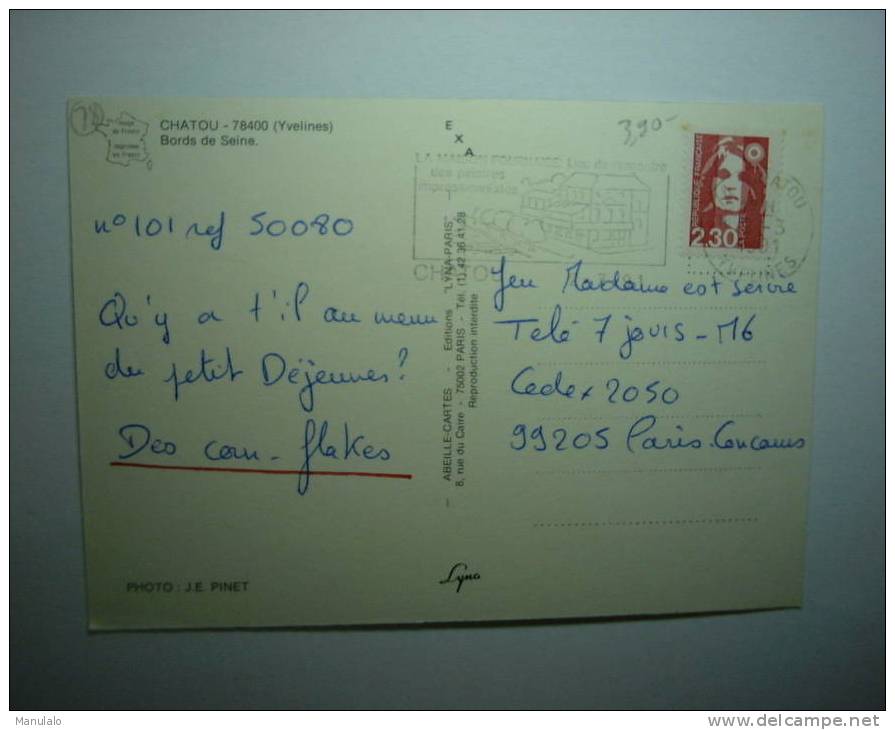 78
image
de France
imprimée
en France
CHATOU - 78400 (Yvelines)
Bords de Seine.
E
X
A
3,90-
LA MAISON FOURNAISE: Lieu de rencontre
des peintres
impressionnistes
CHATOU
RÉPUBLIQUE FRANÇAISE
2,30
LA POSTE
CHATOU
1991
YVELINES
n° 101 ref 50080
Qu'y a t'il au menu
du petit Déjeuner?
Des corn-flakes
ABEILLE-CARTES - Editions "LYNA-PARIS"
8, rue du Caire - 75002 PARIS - Tél. (1) 42.36.41.28
Reproduction interdite
Jeu Madame est servie
Télé 7 jours - M6
Cedex 2050
99205 Paris-Concours
PHOTO : J.E. PINET
Lyna
Manulalo
www.delcampe.net